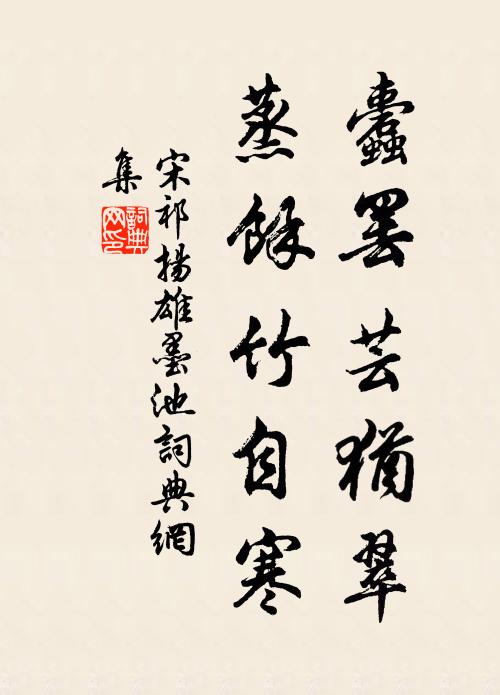 蠹罢芸猶翠
蒸餘竹自寒
宋祁揚雄墨池詞典網
集
詞典
网印